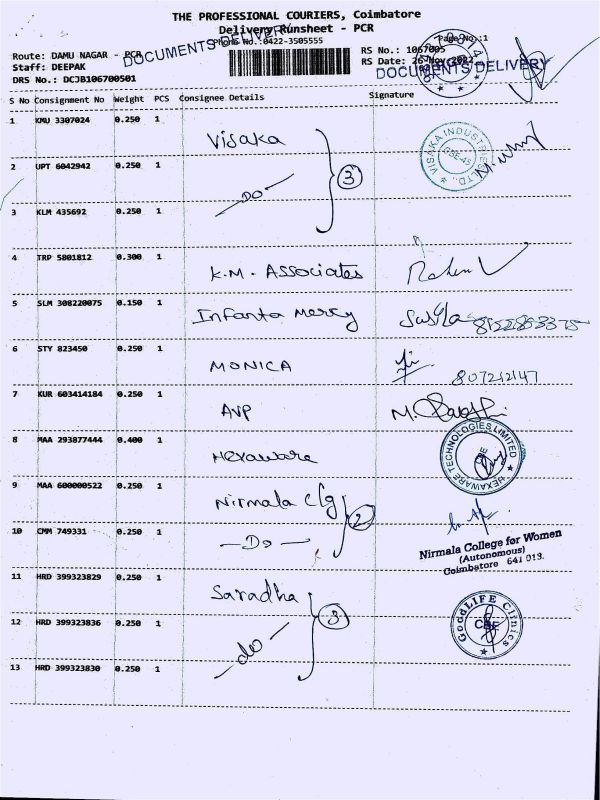 THE PROFESSIONAL COURIERS, Coimbatore
Delivery Runsheet - PCR
Phone No.:0422-3505555
Page No.:1
Route: DAMU NAGAR - PCR
Staff: DEEPAK
DRS No.: DCJB106700501
RS No.: 1067005
RS Date: 26-Nov-2022
DOCUMENTS DELIVERY
DOCUMENTS DELIVERY
S No Consignment No Weight PCS Consignee Details Signature
1 KMU 3307024 0.250 1 Visaka
VISAKA INDUSTRIES LTD.,
CBE-45
2 UPT 6042942 0.250 1 - DO - 3
3 KLM 435692 0.250 1
4 TRP 5801812 0.300 1 K.M. Associates
5 SLM 308220075 0.150 1 Infanta Mercy
6 STY 823450 0.250 1 MONICA
7 KUR 603414184 0.250 1 AVP
8 MAA 293877444 0.400 1 Hexaware
HEXAWARE TECHNOLOGIES LIMITED
9 MAA 600000522 0.250 1 Nirmala clg 2
10 CMM 749331 0.250 1 - Do -
Nirmala College for Women
(Autonomous)
Coimbatore 641 018.
11 HRD 399323829 0.250 1 Saradha
12 HRD 399323836 0.250 1 - do - 3
GoodLIFE Clinics
CBE
13 HRD 399323830 0.250 1